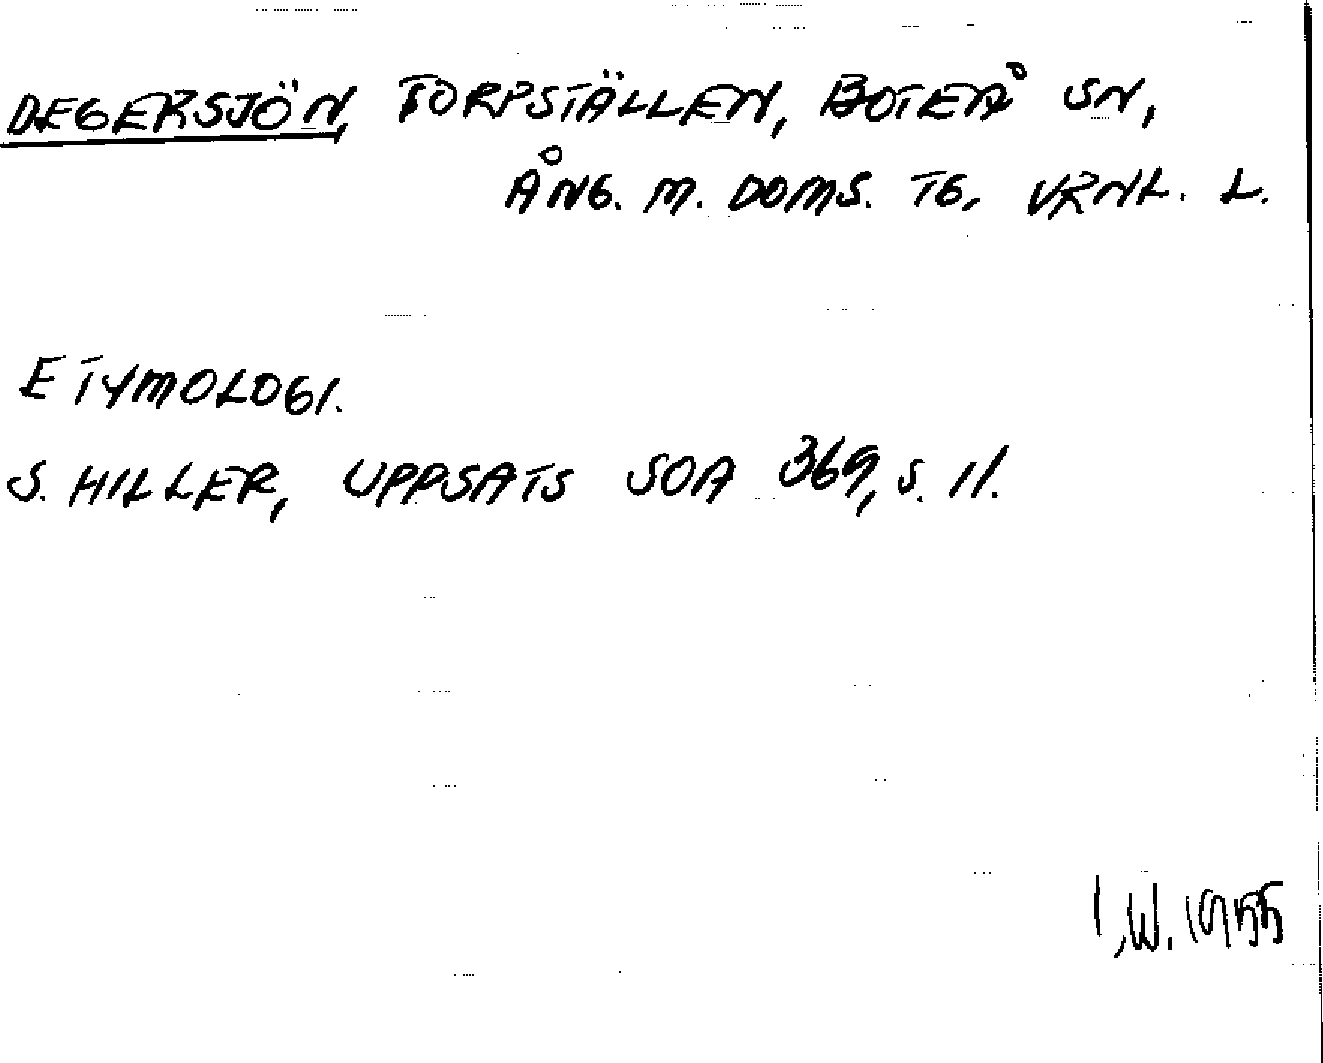 DEGERSJÖN, TORPSTÄLLEN, BOTEÅ SN,
ÅNG. M. DOMS. TG, VRNL. L.
ETYMOLOGI.
S. HILLER, UPPSATS SOA 369, S. 11.
I.W. 1955